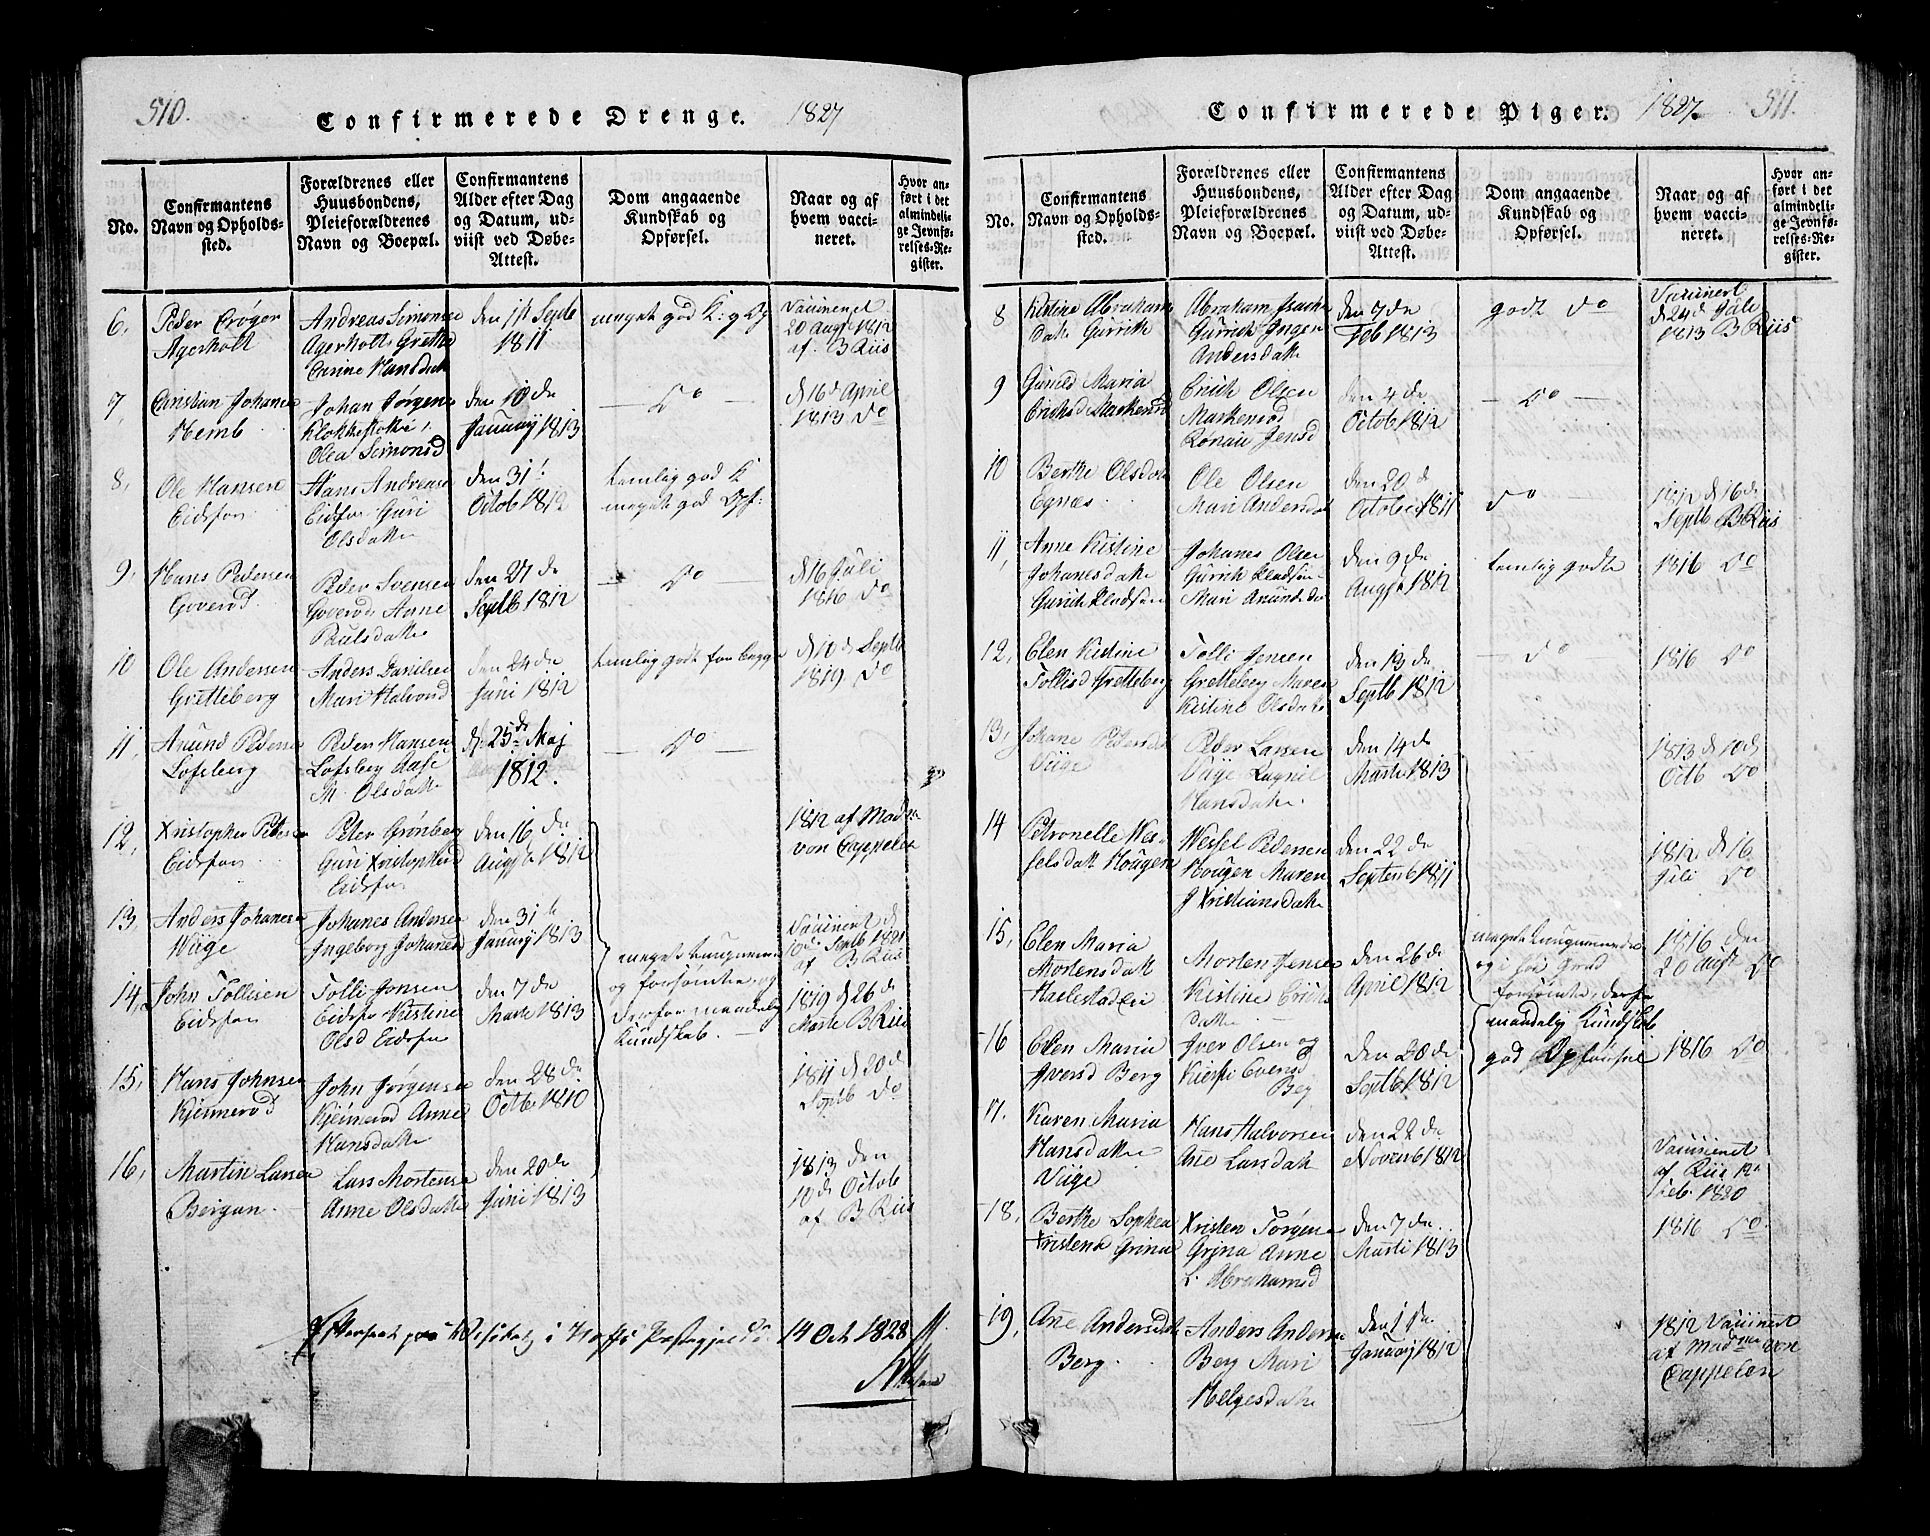 510.
Confirmerede Drenge. 1827
No.
Confirmantens
Navn og Opholds-
sted.
Forældrenes eller
Huusbondens,
Pleieforældrenes
Navn og Boepæl.
Confirmantens
Alder efter Dag
og Datum, ud-
viist ved Døbe-
Attest.
Dom angaaende
Kundskab og
Opførsel.
Naar og af
hvem vacci-
neret.
Hvor an-
ført i det
almindeli-
ge Jevnfø-
relses-Re-
gister.
6,
Peder
Agerholt
Andreas Simonsen
Agerholt Grethe
Hansdatt
den 1st Septb
1811
meget god K: og
Vaccineret
20 Augt 1812
af B Riis
7,
Christian Johansen
Hemb
Johan Jørgensen
Klokkeholte
Olea Simonsd
den 10 de
Januarij 1813
Do
d 16 d April
1813 Do
8,
Ole Hansen
Eidsfos
Hans Andreasen
Eidsfos Guri
Olsdatter
den 31t
Octob 1812
temlig god K
meget god Opf:
9,
Hans Pedersen
Goverød
Peder Svensen
Goverød Anne
Poulsdatter
den 27 de
Septb 1812
Do
d 16 Juli
1816 Do
10
Ole Andersen
Gretteberg
Anders Davidsen
Mari Halvorsd
den 24 de
Juni 1812
temlig godt for begge
d 10 d Septb
1819 Do
11,
Amund Pedersen
Lofsberg
Peder Hansen
Lofsberg Aase
M. Olsdatter
d. 25de Maj
1812.
Do
12,
Xristopher Pedersen
Eidsfos
Peter Grønberg
Guri Xristophersd
Eidsfos
den 16 de
Augst 1812
1812 af Madme
von Cappelen
13,
Anders Johanesen
Viige
Johanes Andersen
Ingeborg Johanesd
den 31te
Januarij 1813
meget tungnemme
og forsømte, og
derfor maadelig
Kundskab.
Vaccineret d
10de Septb 1821
af B Riis
14,
John Tollisen
Eidsfos
Tolli Jonsen
Eidsfos Kistine
Olsd Eidsfos
den 7 de
Marts 1813
1819 d 26 de
Marts B Riis
15,
Hans Johnsen
Kjennerød
John Jørgensen
Kjennerød Anne
Hansdatter
den 28 de
Octb 1810
1811 d 20 d
Septb Do
16,
Martin Larsen
Bergan
Lars Mortensen
Anne Olsdatter
den 20 de
Juni 1813
1813 den
10 de Octob
af B Riis
Efterseet paa Visitatz i Hoffs Præstegjeld d. 14 Oct 1828
511.
Confirmerede Piger. 1827
No.
Confirmantens
Navn og Opholds-
sted.
Forældrenes eller
Huusbondens,
Pleieforældrenes
Navn og Boepæl.
Confirmantens
Alder efter Dag
og Datum, ud-
viist ved Døbe-
Attest.
Dom angaaende
Kundskab og
Opførsel.
Naar og af
hvem vacci-
neret.
Hvor an-
ført i det
almindeli-
ge Jevnfø-
relses-Re-
gister.
8
Kistine Abrahams
Datt Gurrik
Abraham Isachsen
Gurrik Inger
Andersdatter
den 7 de
Feb 1813
godt Do
Vaccinert
d 24 d Juli
1813 B Riis
9
Gunild Maria
Erichsd Markerud
Erich Olsen
Markerud
Jensd
den 4 de
Octob 1812
Do
10
Berthe Olsdatt
Egnæs
Ole Olsen
Mari Andersdatt
den 20 d
October 1811
Do
1812 d 16 de
Septb B Riis
11,
Anne Kistine
Johanesdatter
Gurrik Pladsen
Johanes Olsen
Gurrik Pladsen
Mari Amundsdr
den 9 de
Augst 1812
temlig godt
1816 Do
12,
Elen Kistine
Tollisd Gretteberg
Tolli Jensen
Gretteberg Maren
Kistine Olsdatter
den 13 de
Septb 1812
Do
1816 Do
13,
Johane Pedersdatt
Viige
Peder Larsen
Viige Ragnil
Hansdatter
den 14 de
Marts 1813
1813 d 10 d
Octb Do
14
Petronelle Wes-
selsdatt Hougen
Wessel Pedersen
Hougen Maren
J Xristiansdatter
den 22 de
Septemb 1811
1812 d 16
Juli Do
15,
Elen Maria
Mortensdatt
Haslestadeie
Morten Jensen
Kistine
datter
den 26 de
April 1812
meget tungnemme
og i høi Grad
forsømte, derfor
maadelig Kundskab
god Opførsel
1816 den
20 Augst Do
16
Elen Maria
Iversd Berg
Iver Olsen og
Kirsti Evensd
Berg
den 20 de
Septb 1812
1816 Do
17.
Karen Maria
Hansdatter
Viige
Hans Halvorsen
Ane Larsdatt
den 22 de
Novemb 1812
Vaccineret
af Riis 12
Feb. 1820
18,
Berthe Sophea
Xristensd Grina
Xristen Jørgensen
Grina Anne
L. Abrahamsd
den 7 de
Marts 1813
1816 Do
19,
Ane Andersdatt
Berg.
Anders Andersen
Berg Mari
Helgesdatter
den 1 de
Januarij 1812
1812 Vaccineret
af Madme von
Cappelen